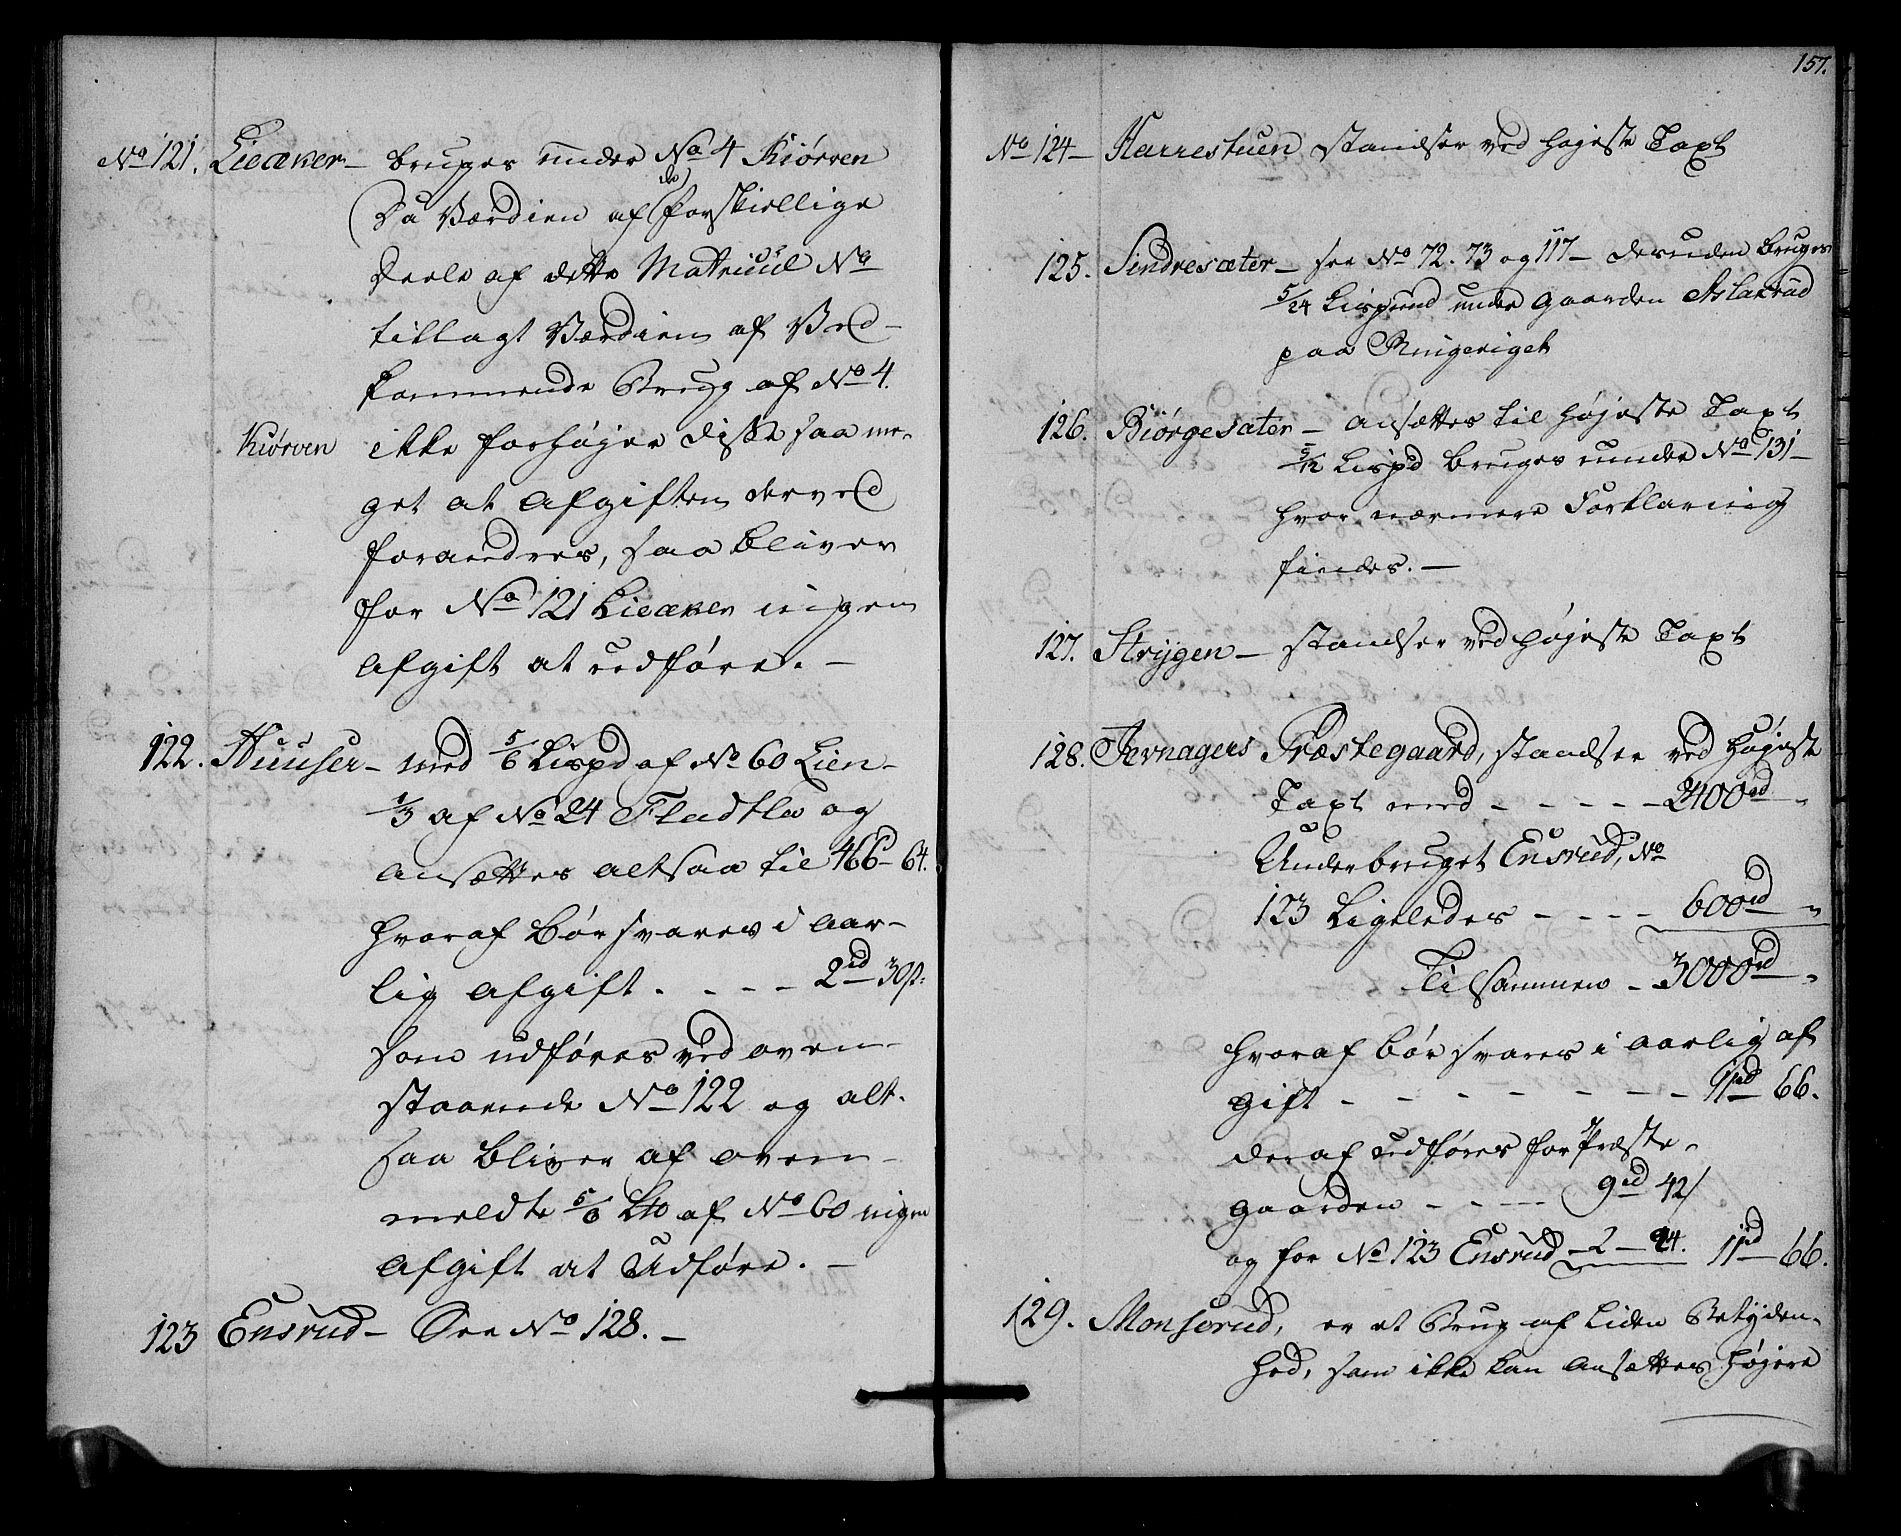 No 121. Lieæker – bruges under No 4 Kiørven
Da Værdien af de forskiellige
Deele af dette Matricul No
tillagt Værdien af Ved-
kommende Brug af No 4.
Kiørven ikke forhøjer disse saa me-
get at Afgiften derved
forandres, saa bliver
for No 121 Lieæker ingen
Afgift at udføre. –
122. Huuser – med 5/6 Lispd af No 60 Lien –
1/3 af No 24 Fladtla og
ansættes altsaa til 466 – 64.
hvoraf bør svares i aar-
lig afgift . - - - 2rd 30s.
som udføres ved oven-
staaende No 122 og alt-
saa bliver af oven-
meldte 5/6 Lto af No 60 ingen
Afgift at Udføre. –
123 Ensrud – See No 128. –
157.
No 124 – Harrestuen standser ved højeste Taxt
125. Sindresæter – see No 72. 73 og 117 – desuden bruges
5/24 Lispund under Gaarden Aslakrud
paa Ringeriget
126. Biørgesæter – ansættes til højeste Taxt
5/12 Lispd bruges under No 131 –
hvor nærmere Forklaring
findes. –
127. Strijgen – standser ved højeste Taxt
128. Jevnagers Præstegaard, standser ved højeste
Taxt med - - - - - 2400rd "
Underbruget Ensrud, No
123 Ligeledes - - - - 600rd "
Tilsammen - 3000rd "
hvoraf bør svares i aarlig af
gift - - - - - - - 11rd 66.
deraf udføres for Præste-
gaarden - - - - 9rd 42/
og for No 123 Ensrud – 2 – 24. 11rd – 66.
129. Monserud, er et Brug af liden Betyden-
hed, som ikke kan ansættes højere